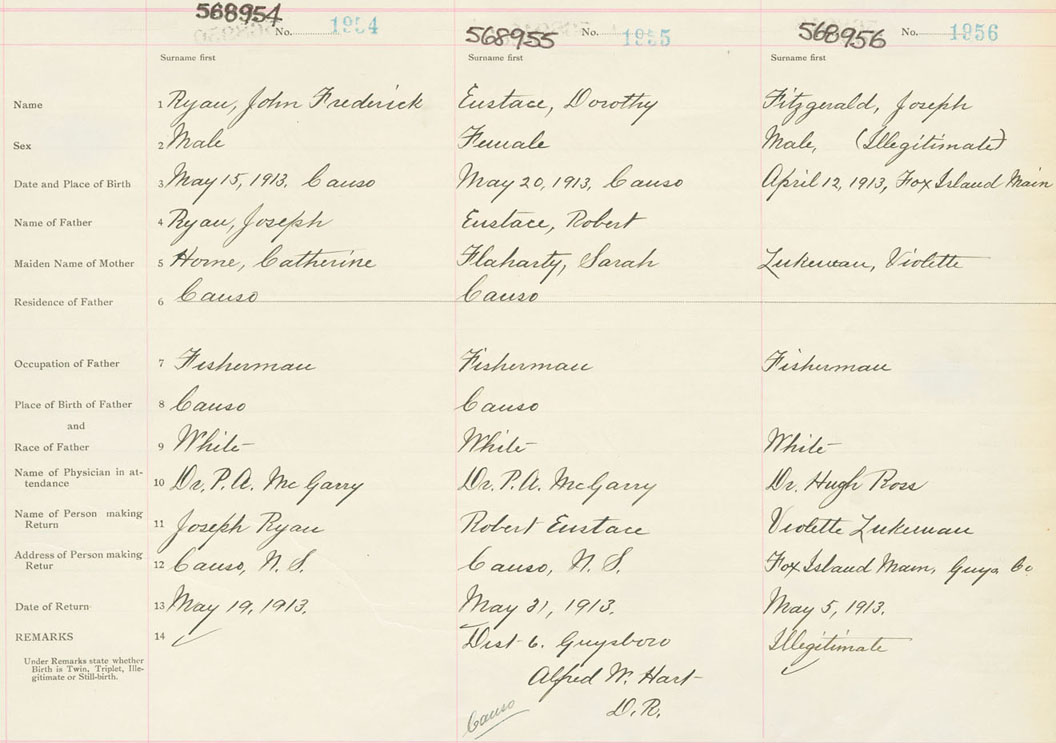 568954 No. 1954 568955 No. 1955 568956 No. 1956
Surname first Surname first Surname first
Name 1 Ryan, John Frederick Eustace, Dorothy Fitzgerald, Joseph
Sex 2 Male Female Male, (Illegitimate)
Date and Place of Birth 3 May 15, 1913, Canso May 20, 1913, Canso April 12, 1913, Fox Island Main
Name of Father 4 Ryan, Joseph Eustace, Robert
Maiden Name of Mother 5 Horne, Catherine Flaharty, Sarah Lukeman, Violette
Residence of Father 6 Canso Canso
Occupation of Father 7 Fisherman Fisherman Fisherman
Place of Birth of Father 8 Canso Canso
and
Race of Father 9 White White White
Name of Physician in at-
tendance 10 Dr. P.A. McGarry Dr. P.A. McGarry Dr. Hugh Ross
Name of Person making
Return 11 Joseph Ryan Robert Eustace Violette Lukeman
Address of Person making
Retur 12 Canso, N.S. Canso, N.S. Fox Island Main, Guys. Co
Date of Return 13 May 19, 1913. May 31, 1913. May 5, 1913.
REMARKS 14 Dist 6. Guysboro Illegitimate
Under Remarks state whether
Birth is Twin, Triplet, Ille-
gitimate or Still-birth.
Alfred W. Hart
D.R.
Canso